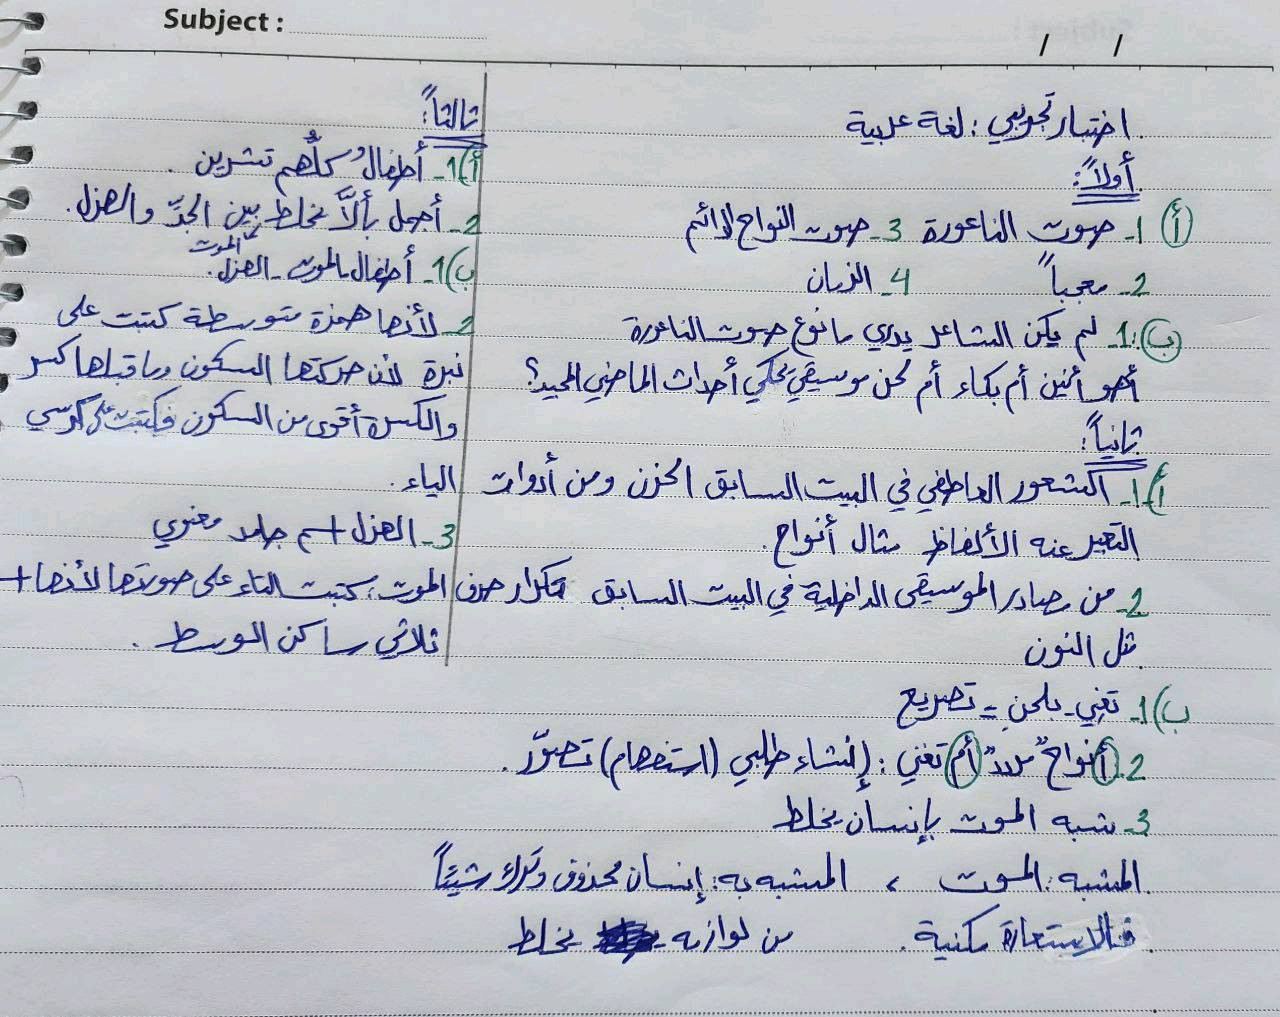 Subject :
/ /
اختبار تجريبي : لغة عربية
أولاً:
أ) 1- صوت الناعورة 3- صوت النواح الدائم
2- معجباً 4- الزمان
ب): 1- لم يكن الشاعر يدري ما نوع صوت الناعورة
أهو أنين أم بكاء أم لحن موسيقي يحكي أحداث الماضي المجيد؟
ثانياً:
أ) 1- الشعور العاطفي في البيت السابق الحزن ومن أدوات
التعبير عنه الألفاظ مثال أنواح.
2- من مصادر الموسيقى الداخلية في البيت السابق تكرار حرف
مثل النون
ب) 1- تغني - بلحن = تصريع
2- أنواح" أم تغني : إنشاء طلبي (استفهام) تصوّر.
3- شبه الموت بإنسان يخلط
المشبه : الموت ، المشبه به : إنسان محذوف وترك شيئاً
من لوازمه يخلط
فالاستعارة مكنية.
ثالثاً:
أ) 1- أطفالُ كلُّهم تشرين .
2- أجمل بألاَّ يخلط بين الجدّ والهزل.
الموت
ب) 1- أطفال - الموت - الهزل.
2- لأنها همزة متوسطة كتبت على
نبرة لأن حركتها السكون وما قبلها كسر
والكسرة أقوى من السكون فكتبت على كرسي
الياء .
3- الهزل + اسم جامد معنوي
الموت : كتبت التاء على صورتها لأنها +
ثلاثي ساكن الوسط .